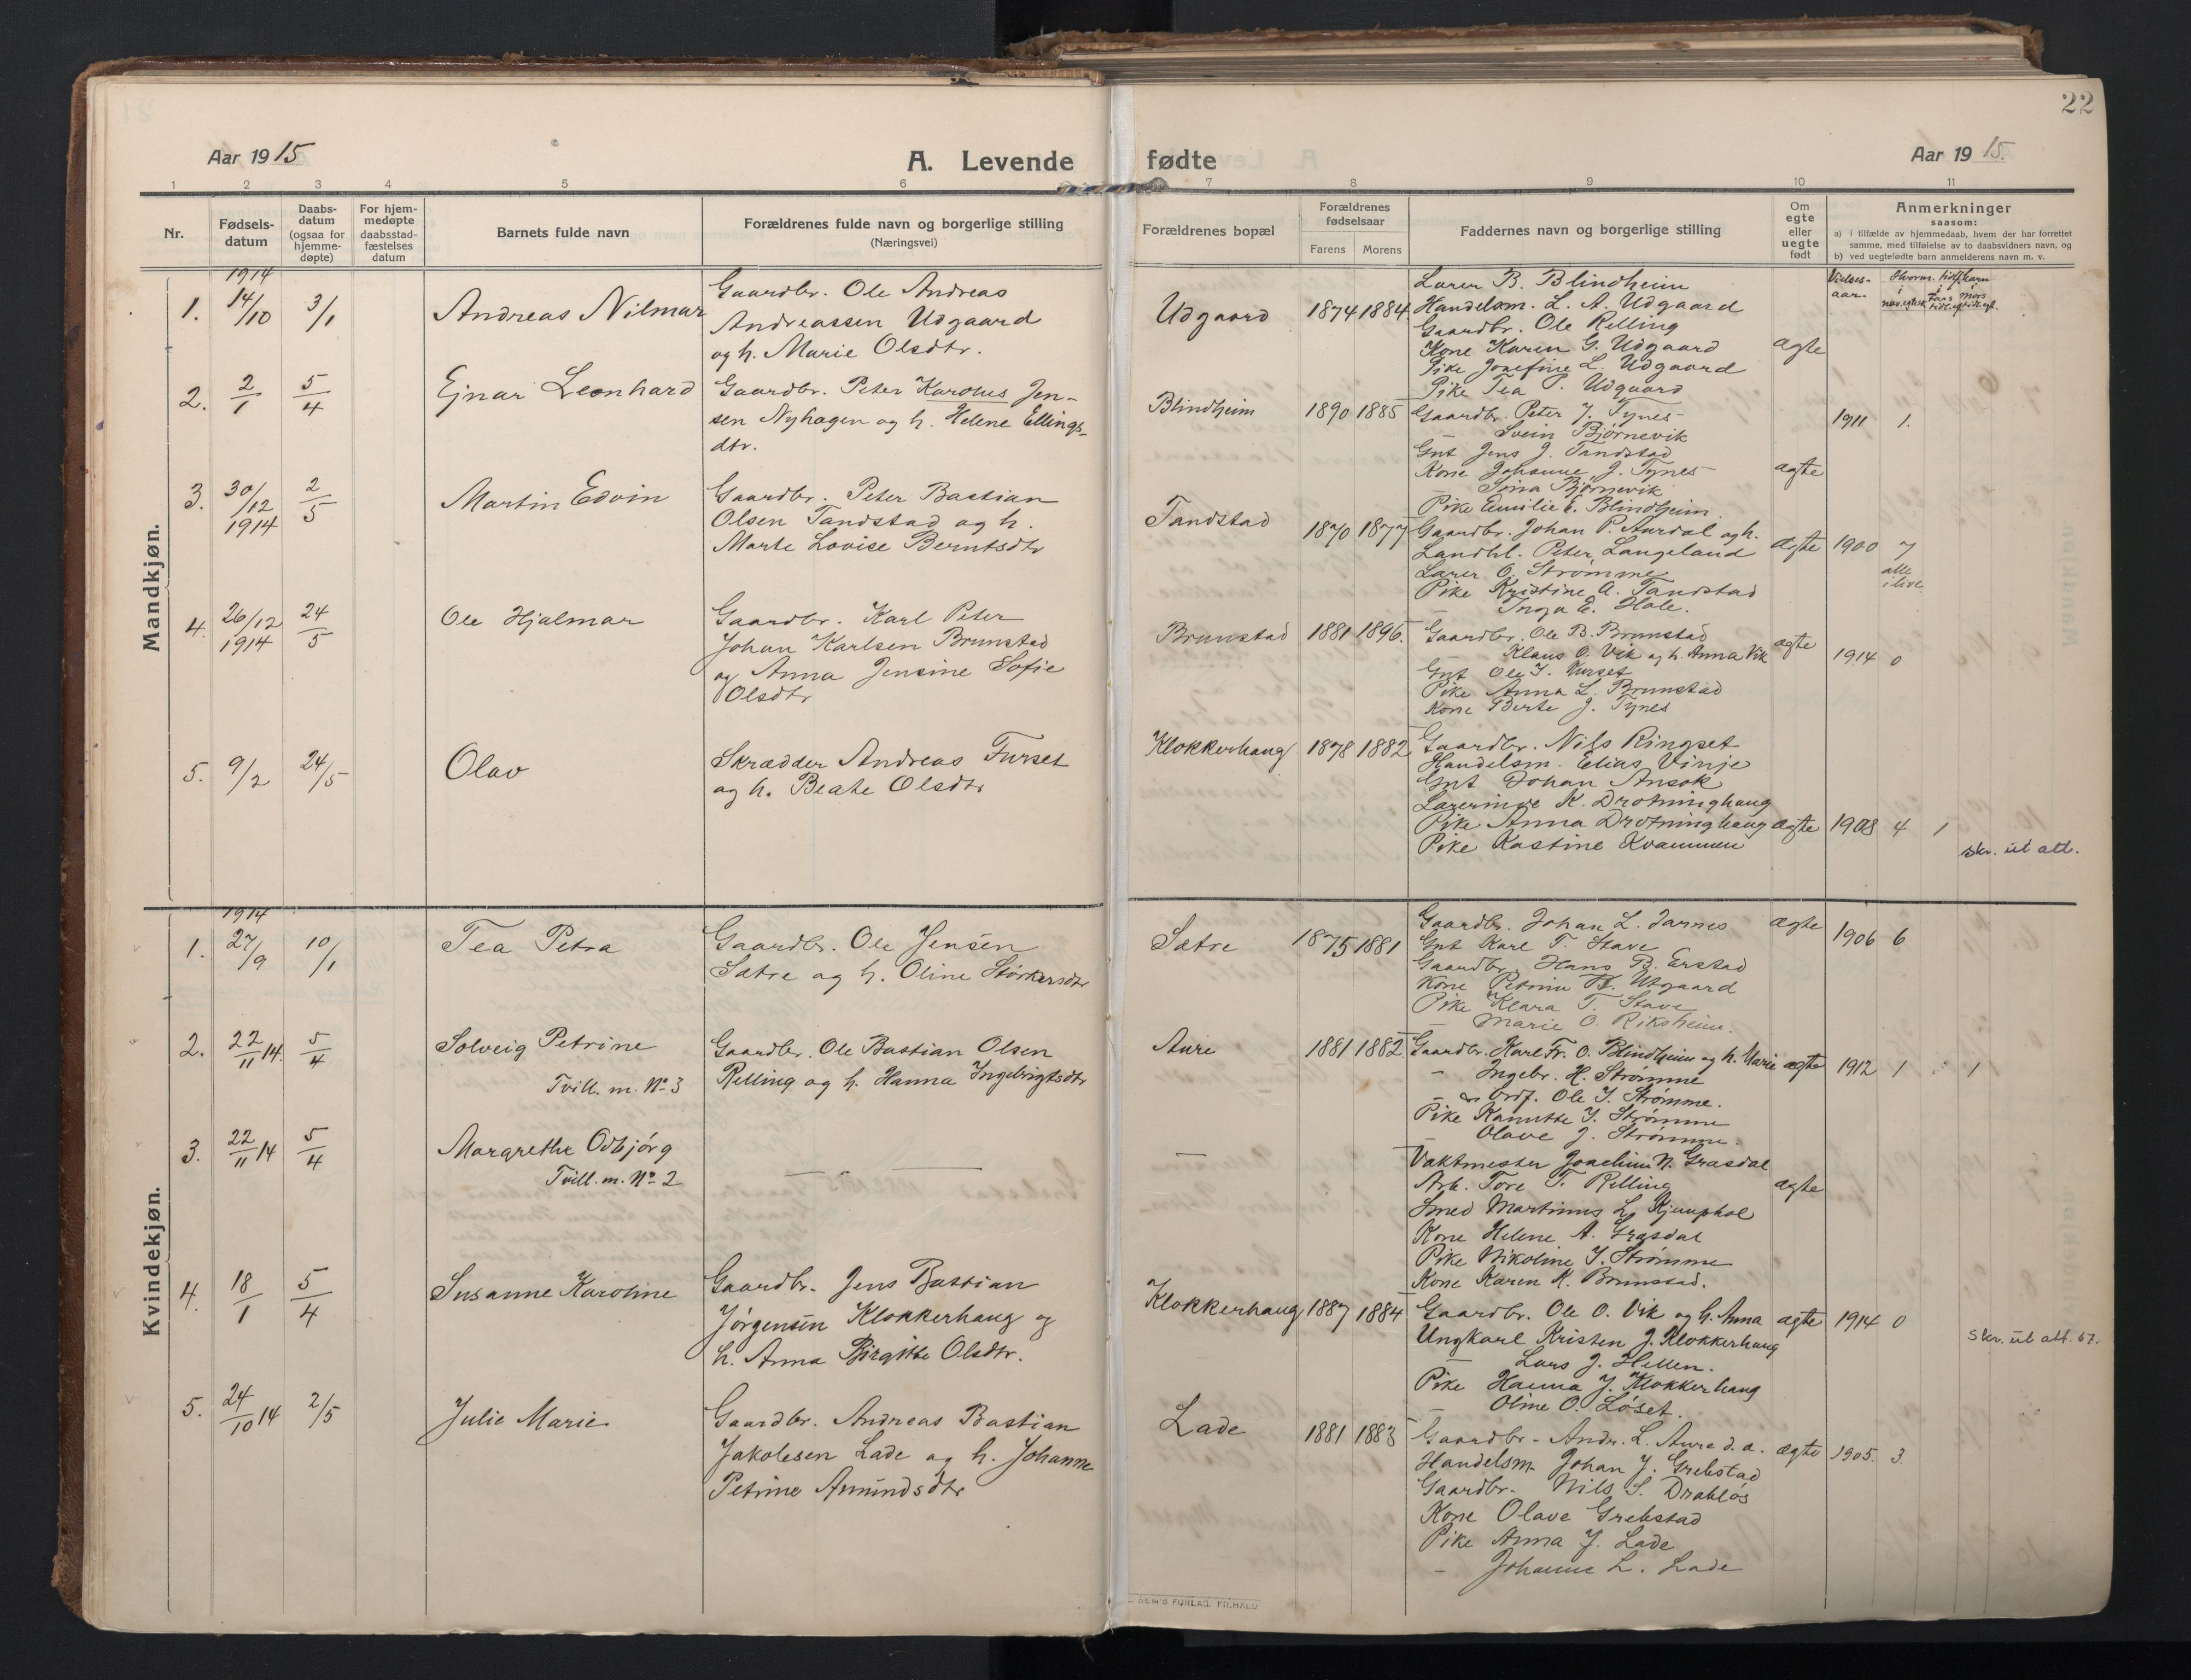 22
Aar 1915
A. Levende fødte
Aar 1915.
1 2 3 4 5 6 7 8 9 10 11
Nr.
Fødsels-
datum
Daabs-
datum
(ogsaa for
hjemme-
døpte)
For hjem-
medøpte
daabsstad-
fæstelses
datum
Barnets fulde navn
Forældrenes fulde navn og borgerlige stilling
(Næringsvei)
Forældrenes bopæl
Forældrenes
fødselsaar
Farens Morens
Faddernes navn og borgerlige stilling
Om
egte
eller
uegte
født
Anmerkninger
saasom:
a) i tilfælde av hjemmedaab, hvem der har forrettet
samme, med tilføielse av to daabsvidners navn, og
b) ved uegtefødte barn anmelderens navn m. v.
Mandkjøn.
1914
1. 14/10 3/1 Andreas Nilmar
Gaardbr. Ole Andreas
Andreassen Udgaard
og h. Marie Olsdtr.
Udgaard 1874 1884
Lærer B. Blindheim
Handelsm. L. A. Udgaard
Gaardbr. Ole Relling
Kone Karen G. Udgaard
Pike Josefine L. Udgaard
Pike Tea P. Udgaard
ægte
Vielses-
aar.
2. 2/1 5/4 Ejnar Leonhard
Gaardbr. Peter Karolus Jen-
sen Nyhagen og h. Helene Ellings-
dtr.
Blindheim 1890 1885
Gaardbr. Peter J. Tynes
Svein Bjørnevik
Gut Jens J. Tandstad
Kone Johanne J. Tynes
— Sina Bjørnevik
Pike Emilie E. Blindheim.
ægte 1911 1.
3. 30/12 1914 2/5 Martin Edvin
Gaardbr. Peter Bastian
Olsen Tandstad og h.
Marte Lovise Berntsdtr
Tandstad 1870 1877
Gaardbr. Johan P. Aurdal og h.
Landhl. Peter Langeland
Lærer O. Strømme
Pike Kristine A. Tandstad
— Inga E. Hole.
ægte 1900 7
alle
i live
4. 26/12 1914 24/5 Ole Hjalmar
Gaardbr. Karl Peter
Johan Karlsen Brunstad
og Anna Jensine Sofie
Olsdtr
Brunstad 1881 1896.
Gaardbr. Ole B. Brunstad
Klaus O. Vik og h. Anna Vik
Gut Ole J. Furset
Pike Anna L. Brunstad
Kone Berte J. Tynes
ægte 1914 0
5. 9/2 24/5 Olav
Skrædder Andreas Furset
og h. Beate Olsdtr
Klokkerhaug 1878 1882
Gaardbr. Nils Ringset
Handelsm. Elias Vinje
Gut Johan Ansok
Lærerinde K. Drotninghaug
Pike Anna Drotninghaug
Pike Kastine Kvammen
ægte 1908 4 1
skr. ut att.
Kvindekjøn.
1914
1. 27/9 10/1 Tea Petra
Gaardbr. Ole Jensen
Sætre og h. Oline Størkersdtr
Sætre 1875 1881
Gaardbr. Johan L. Jarnes
Gut Karl T. Stave
Gaardbr. Hans B. Erstad
Kone Petrine B. Utgaard
Pike Klara T. Stave
— Marie O. Riksheim.
ægte 1906 6
2. 22/11 14. 5/4 Solveig Petrine
Tvill. m. No 3
Gaardbr. Ole Bastian Olsen
Relling og h. Hanna Ingebrigtsdtr
Aure 1881 1882
Gaardbr. Karl Fr. O. Blindheim og h. Marie
— Ingebr. H. Strømme
— Ordf. Ole J. Strømme.
Pike Kanutte J. Strømme
— Olave J. Strømme.
ægte 1912 1 1
3. 22/11 14 5/4 Margrethe Odbjørg
Tvill. m. No 2
— —
—
Vaktmester Joachim N. Grasdal
Arb. Tore T. Relling
Smed Martinus L. Kjemphol
Kone Helene A. Grasdal
Pike Nikoline J. Strømme
Kone Karen K. Brunstad.
ægte
4. 18/1 5/4 Susanne Karoline
Gaardbr. Jens Bastian
Jørgensen Klokkerhaug og
h. Anna Birgitte Olsdtr.
Klokkerhaug 1887 1884
Gaardbr. Ole O. Vik og h. Anna
Ungkarl Kristen J. Klokkerhaug
— Lars J. Hellen.
Pike Hanna J. Klokkerhaug
— Oline O. Løset.
ægte 1914 0
skr. ut att. 67.
5. 24/10 14 2/5 Julie Marie
Gaardbr. Andreas Bastian
Jakobsen Lade og h. Johanne
Petrine Amundsdtr
Lade 1881 1883
Gaardbr. Andr. L. Aure d. a.
Handelsm. Johan J. Grebstad
Gaardbr. Nils S. Drabløs
Kone Olave Grebstad
Pike Anna J. Lade
— Johanne L. Lade
ægte 1905. 3.
SEM'S FORLAG. FR.HALD